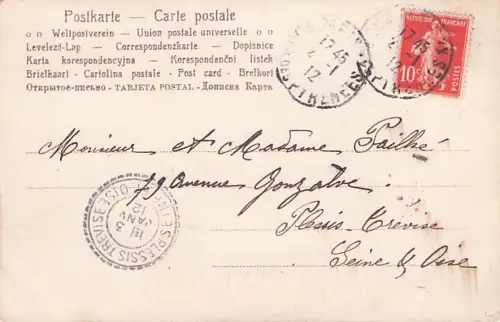 Postkarte — Carte postale
Weltpostverein — Union postale universelle
Levelező-Lap — Correspondenzkarte — Dopisnice
Karta korespondencyjna — Korespondenční lístek
Briefkaart - Cartolina postale - Post card - Brefkort
Открытое-письмо - TARJETA POSTAL - Дописна Карта
17 45
4 - 1
12
PYRENEES
RÉPUBLIQUE FRANÇAISE
10 c
POSTES
17 45
4 - 1
12
Monsieur et Madame Pailhé
79 avenue Gonzalve
Plessis-Trevise
Seine & Oise
PLESSIS TREVISE
OISE
3
JANV
12